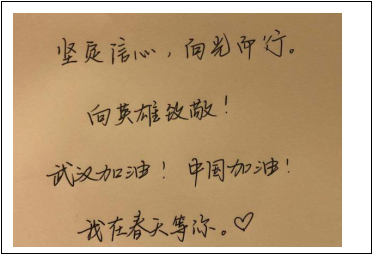 坚定信心，向光而行。
向英雄致敬！
武汉加油！中国加油！
我在春天等你。♡